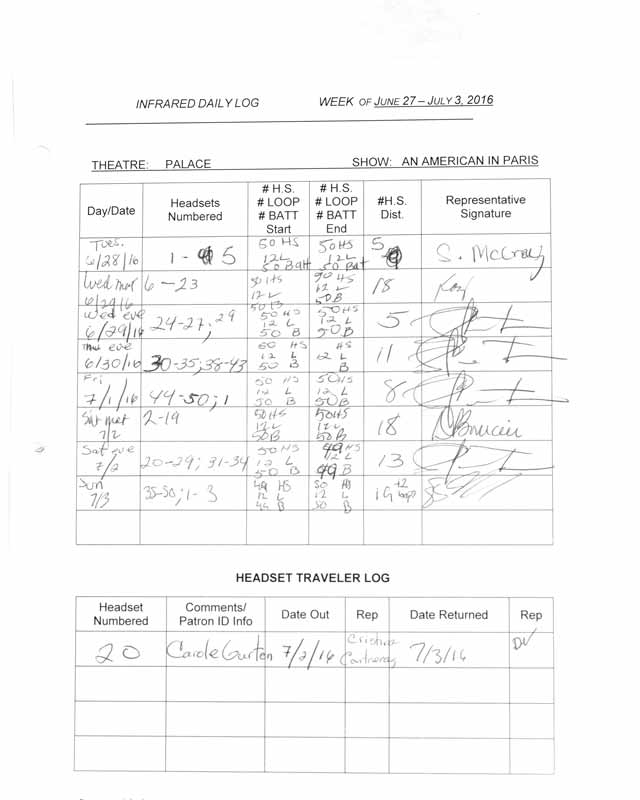 INFRARED DAILY LOG WEEK OF JUNE 27 – JULY 3, 2016
THEATRE: PALACE SHOW: AN AMERICAN IN PARIS
Day/Date Headsets Numbered # H.S. # LOOP # BATT Start # H.S. # LOOP # BATT End #H.S. Dist. Representative Signature
Tues. 6/28/16 1 - 5 50 HS 12 L 50 Batt 50 HS 12 L 50 Bat 5 S. McCray
Wed mat 6/29/16 6 - 23 50 HS 12 L 50 B 50 HS 12 L 50 B 18
Wed eve 6/29/16 24-27; 29 50 HS 12 L 50 B 50 HS 12 L 50 B 5
Thu eve 6/30/16 30-35; 38-43 50 HS 12 L 50 B HS 12 L B 11
Fri 7/1/16 44-50; 1 50 HS 12 L 50 B 50 HS 12 L 50 B 8
Sat mat 7/2 2-19 50 HS 12 L 50 B 50 HS 12 L 50 B 18
Sat eve 7/2 20-29; 31-34 50 HS 12 L 50 B 49 HS 12 L 49 B 13
Sun 7/3 35-50; 1-3 49 HS 12 L 49 B 50 HS 12 L 50 B 19 +2 loops
HEADSET TRAVELER LOG
Headset Numbered Comments/ Patron ID Info Date Out Rep Date Returned Rep
20 Carole Gurton 7/2/16 Cristina Contreras 7/3/16 DV